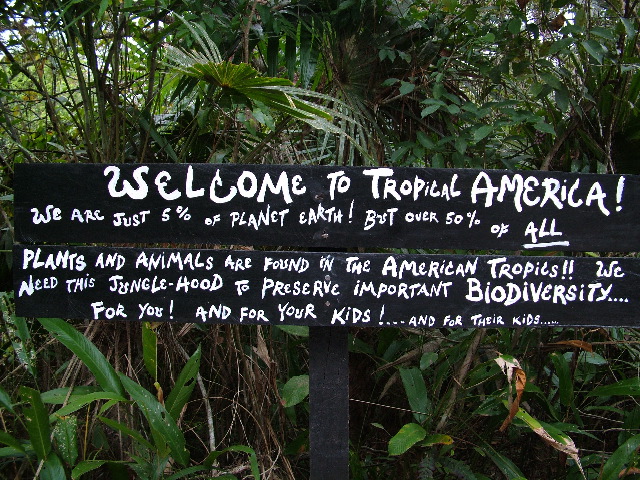 WELCOME TO TROPICAL AMERICA!
WE ARE JUST 5% OF PLANET EARTH! BUT OVER 50% OF ALL
PLANTS AND ANIMALS ARE FOUND IN THE AMERICAN TROPICS!! WE
NEED THIS JUNGLE-HOOD TO PRESERVE IMPORTANT BIODIVERSITY....
FOR YOU! AND FOR YOUR KIDS!....AND FOR THEIR KIDS.....